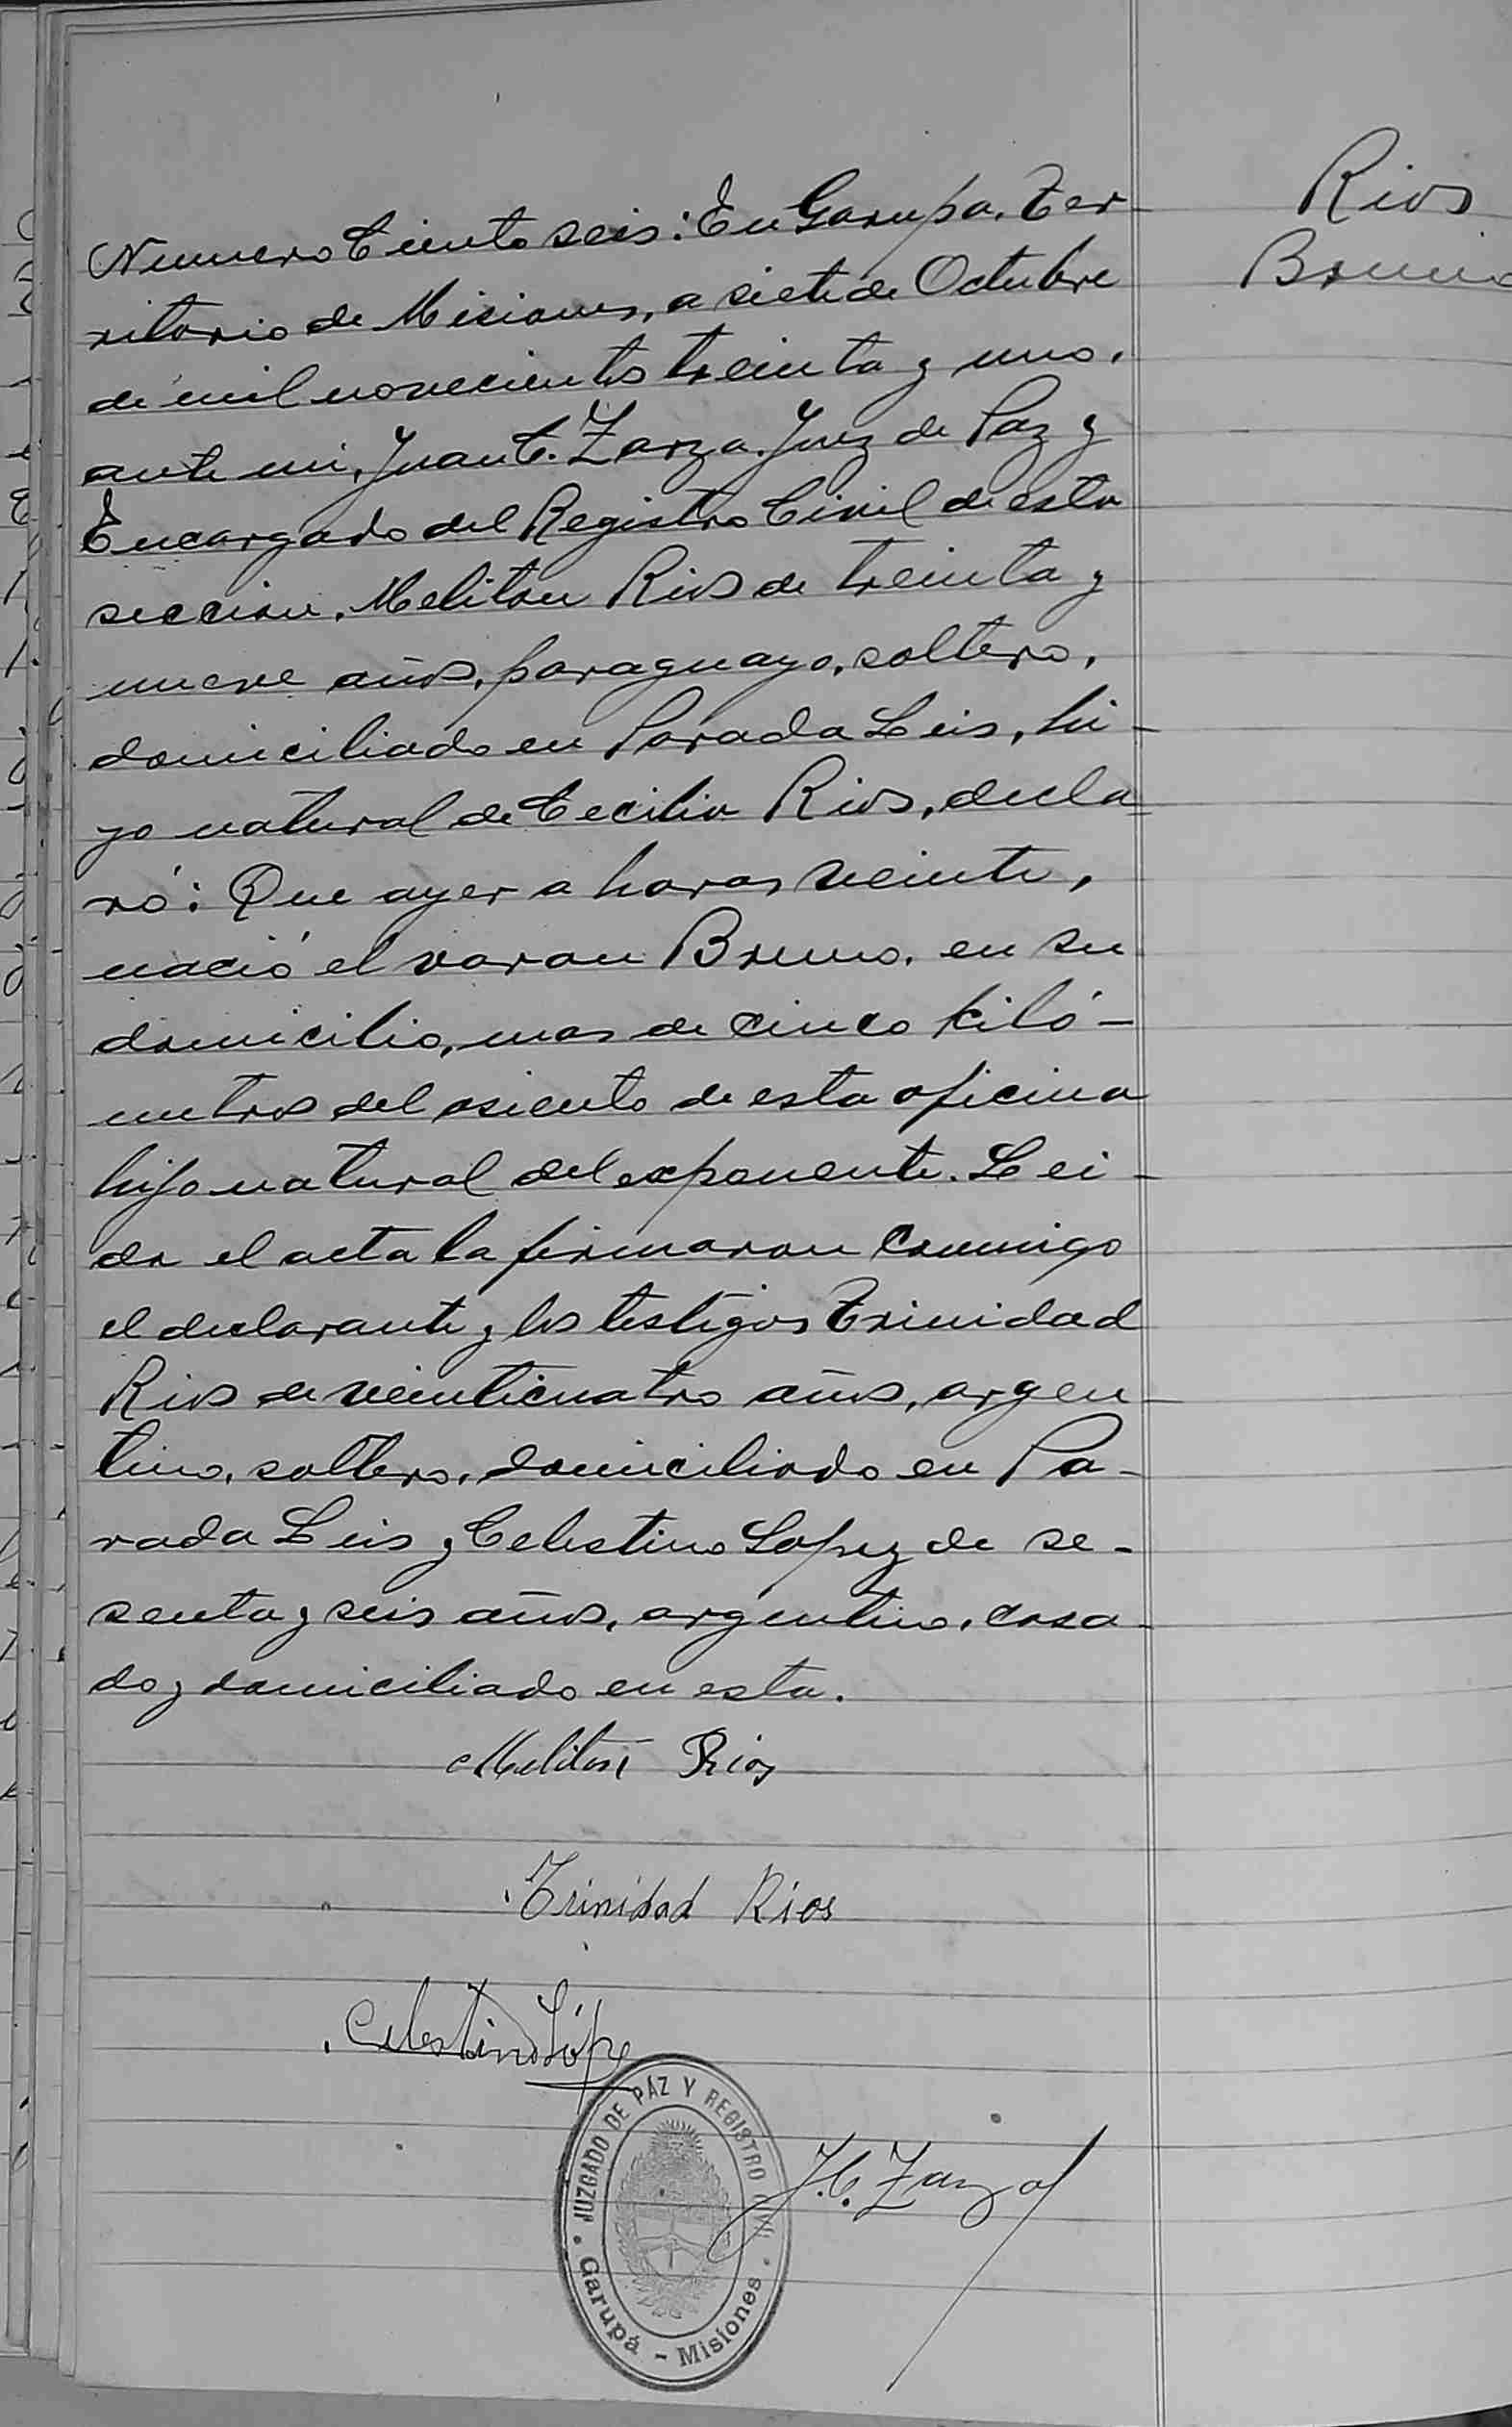 Rios
Bruno
Numero Ciento seis: En Garupa. Ter-
ritorio de Misiones, a siete de Octubre
de mil novecientos treinta y uno.
ante mi, Juan C. Zarza. Juez de Paz y
Encargado del Registro Civil de esta
seccion. Meliton Rios de treinta y
nueve años, paraguayo, soltero,
domiciliado en Parada Leis, hi-
jo natural de Cecilia Rios, decla-
ró: Que ayer a horas veinte,
nació el varon Bruno, en su
domicilio, mas de cinco kiló-
metros del asiento de esta oficina
hijo natural del exponente. Lei-
da el acta la firmaron conmigo
el declarante y los testigos Trinidad
Rios de veinticuatro años, argen-
tino, soltero, domiciliado en Pa-
rada Leis y Celestino Lopez de se-
senta y seis años, argentino, casa-
do y domiciliado en esta.
Meliton Rios
Trinidad Rios
Celestino Lópe
J. C. Zarza
JUZGADO DE PAZ Y REGISTRO CIVIL
Garupá - Misiones